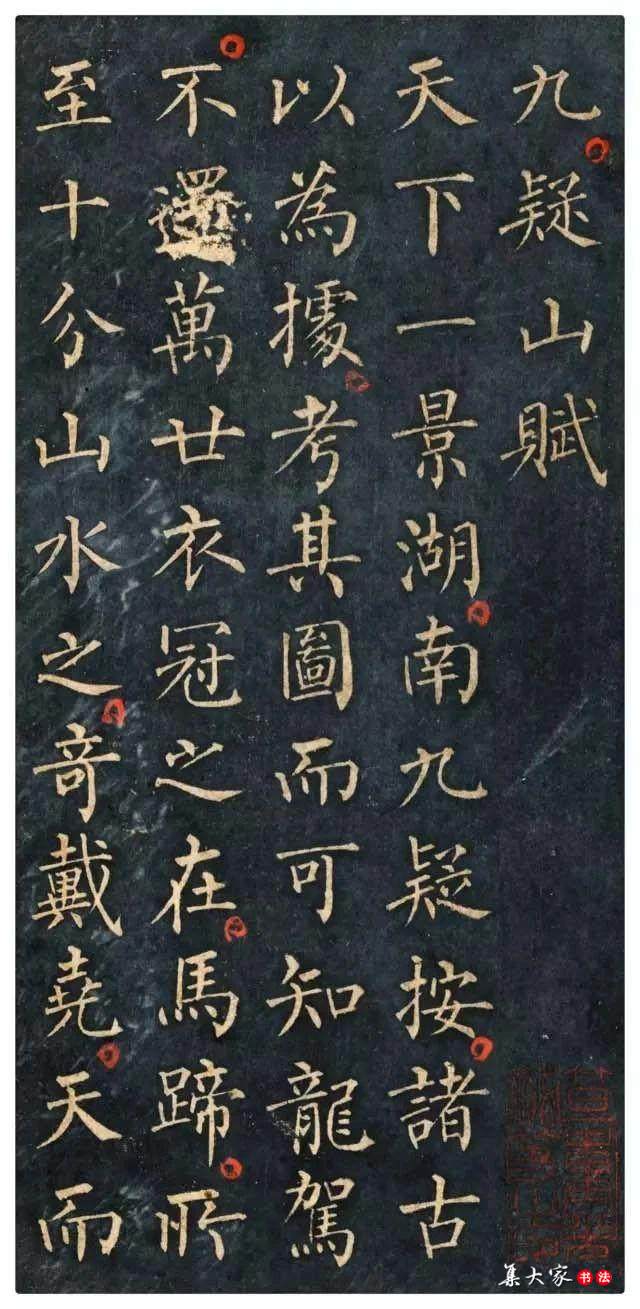 九疑山賦
天下一景湖南九疑按諸古
以為據考其圖而可知龍駕
不還萬廿衣冠之在馬蹄所
至十分山水之奇戴堯天而
集大家 书法